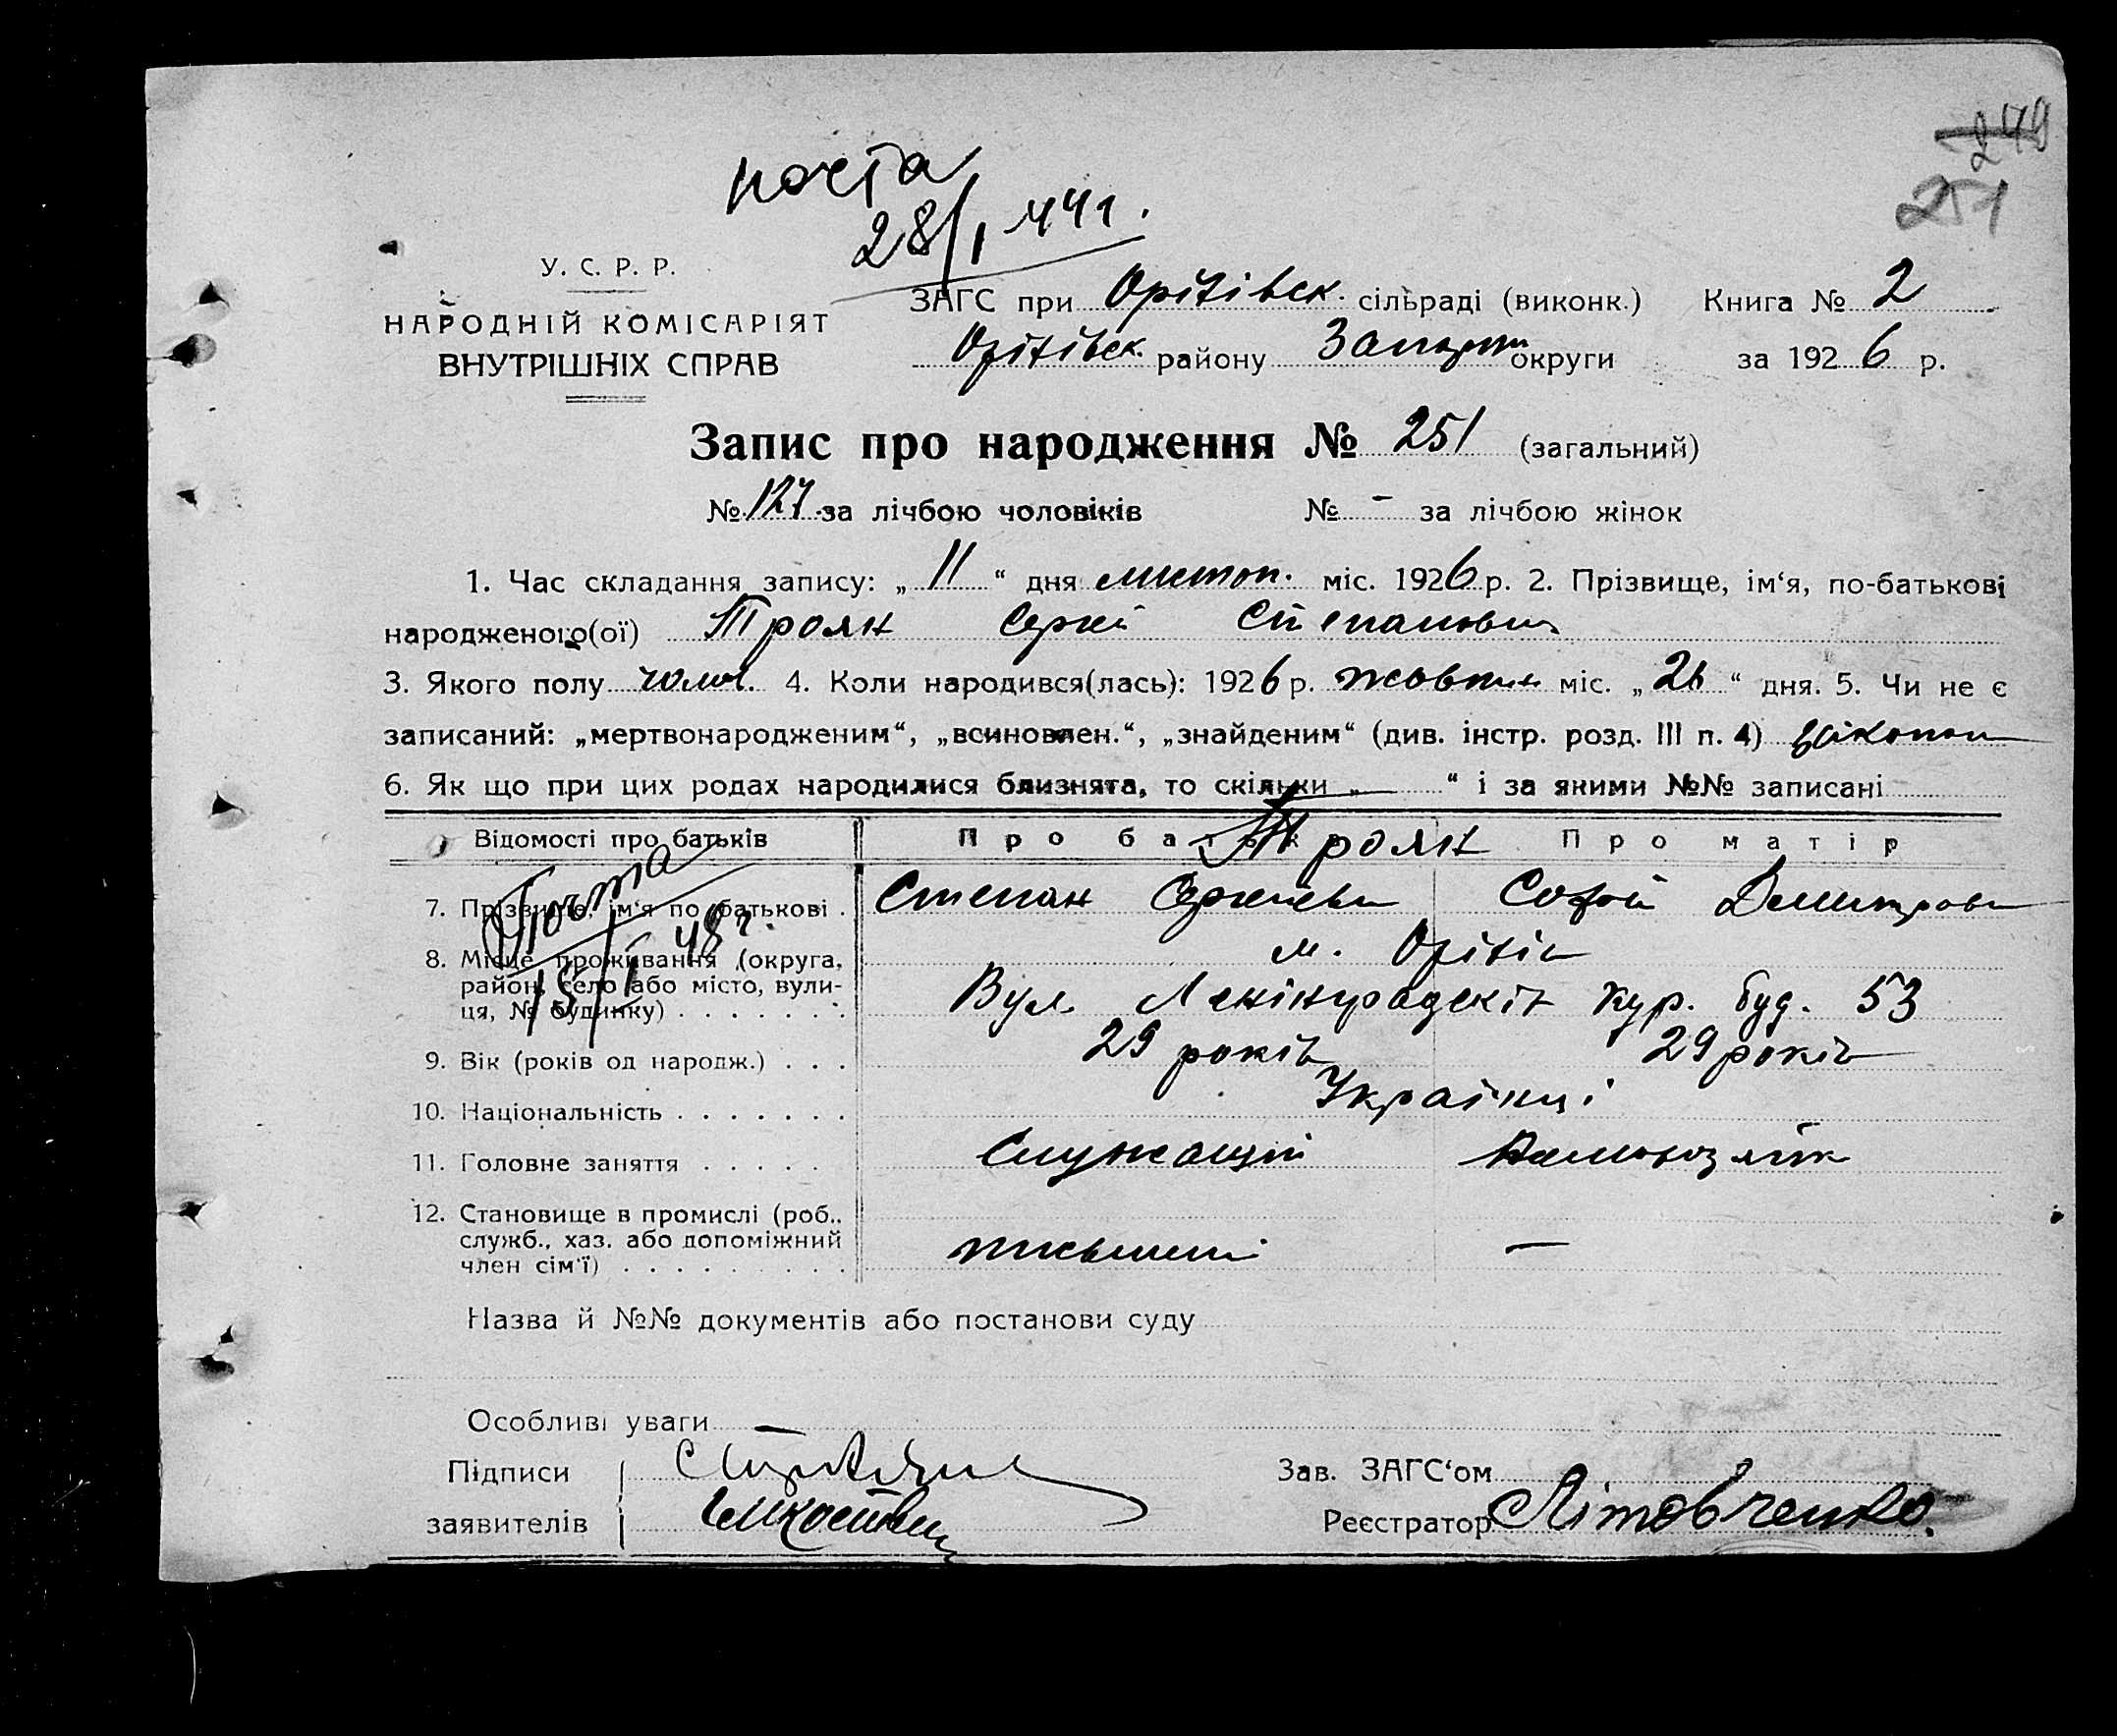 249
251
почта
28/I 44 г.
У. С. Р. Р.
НАРОДНІЙ КОМІСАРІЯТ
ВНУТРІШНІХ СПРАВ
ЗАГС при Оріхівск. сільраді (виконк.) Книга № 2
Оріхівск. району Запоріж округи за 1926 р.
Запис про народження № 251 (загальний)
№ 127 за лічбою чоловіків № - за лічбою жінок
1. Час складання запису: „ 11 “ дня листоп. міс. 1926 р. 2. Прізвище, ім‘я, по-батькові
народженого(ої) Троян Сергій Степанович
3. Якого полу чолов. 4. Коли народився(лась): 1926 р. жовтн міс. „ 26 “ дня. 5. Чи не є
записаний: „мертвонародженим“, „всиновлен.“, „знайденим“ (див. інстр. розд. III п. 4)
6. Як що при цих родах народилися близнята, то скільки „ — “ і за якими №№ записані
Відомості про батьків Про батька Про матір
Троян
7. Прізвище, ім‘я по батькові . Степан Сергієви Софія Дмитрови
Почта
15/I 48 г.
8. Місце проживання (округа, м. Оріхів
район, село або місто, вули-
ця, № будинку) . . . . . . . Вул. Ленінградскій кур. буд. 53
9. Вік (років од народж.) . . . 29 років 29 років
10. Національність . . . . . . . Українці
11. Головне заняття . . . . . Служащий Домохозяйк
12. Становище в промислі (роб.,
служб., хаз. або допоміжний
член сім‘ї) . . . . . . . . . —
Назва й №№ документів або постанови суду
Особливі уваги —
Підписи Зав. ЗАГС‘ом
заявителів Реєстратор Літовченко